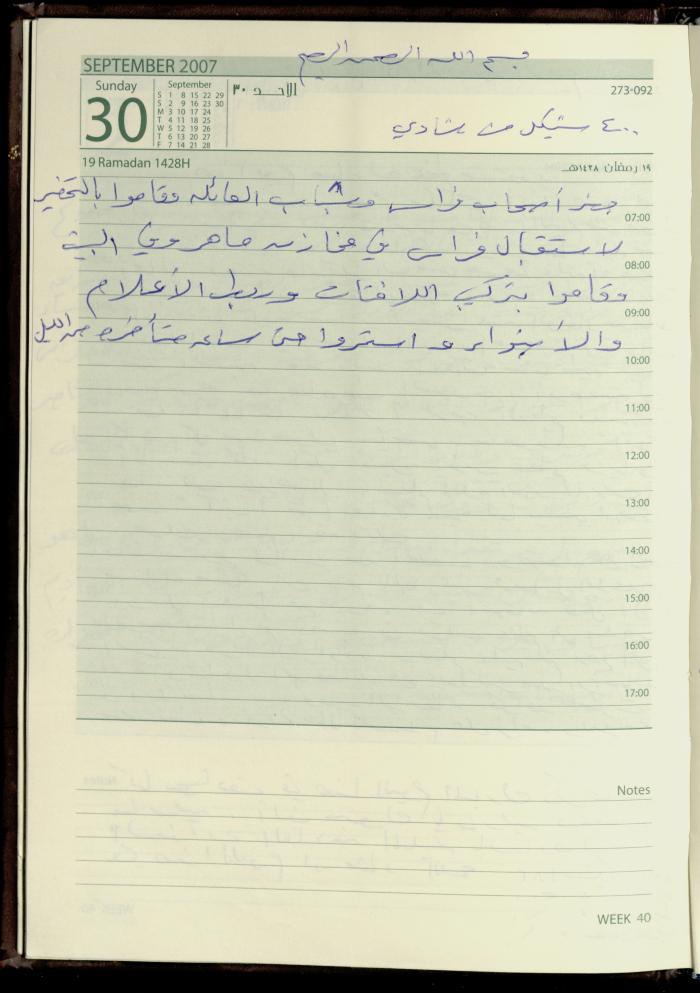 بسم الله الرحمن الرحيم
SEPTEMBER 2007
Sunday
30
September
S 1 8 15 22 29
S 2 9 16 23 30
M 3 10 17 24
T 4 11 18 25
W 5 12 19 26
T 6 13 20 27
F 7 14 21 28
الأحد ٣٠
273-092
٤٠٠ شيكل من شادي
19 Ramadan 1428H
١٩ رمضان ١٤٢٨هـ
أصحاب فراس وشباب العائلة وقاموا بالتحضير
07:00
لاستقبال فراس في مخازن ماهر وفي البيت
08:00
وقاموا بتركيب اللافتات وربط الأعلام
09:00
والأضواء و استمروا حتى ساعة متأخرة من الليل
10:00
11:00
12:00
13:00
14:00
15:00
16:00
17:00
Notes
WEEK 40